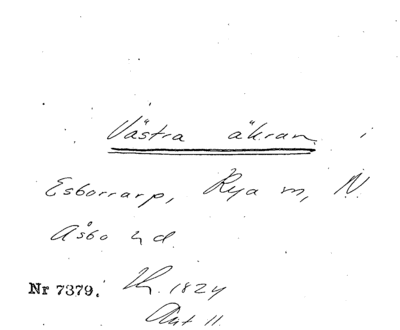 Västra åkran i
Esborrarp, Rya sn, N.
Åsbo hd.
Nr 7379. Th. 1824
Akt 11.